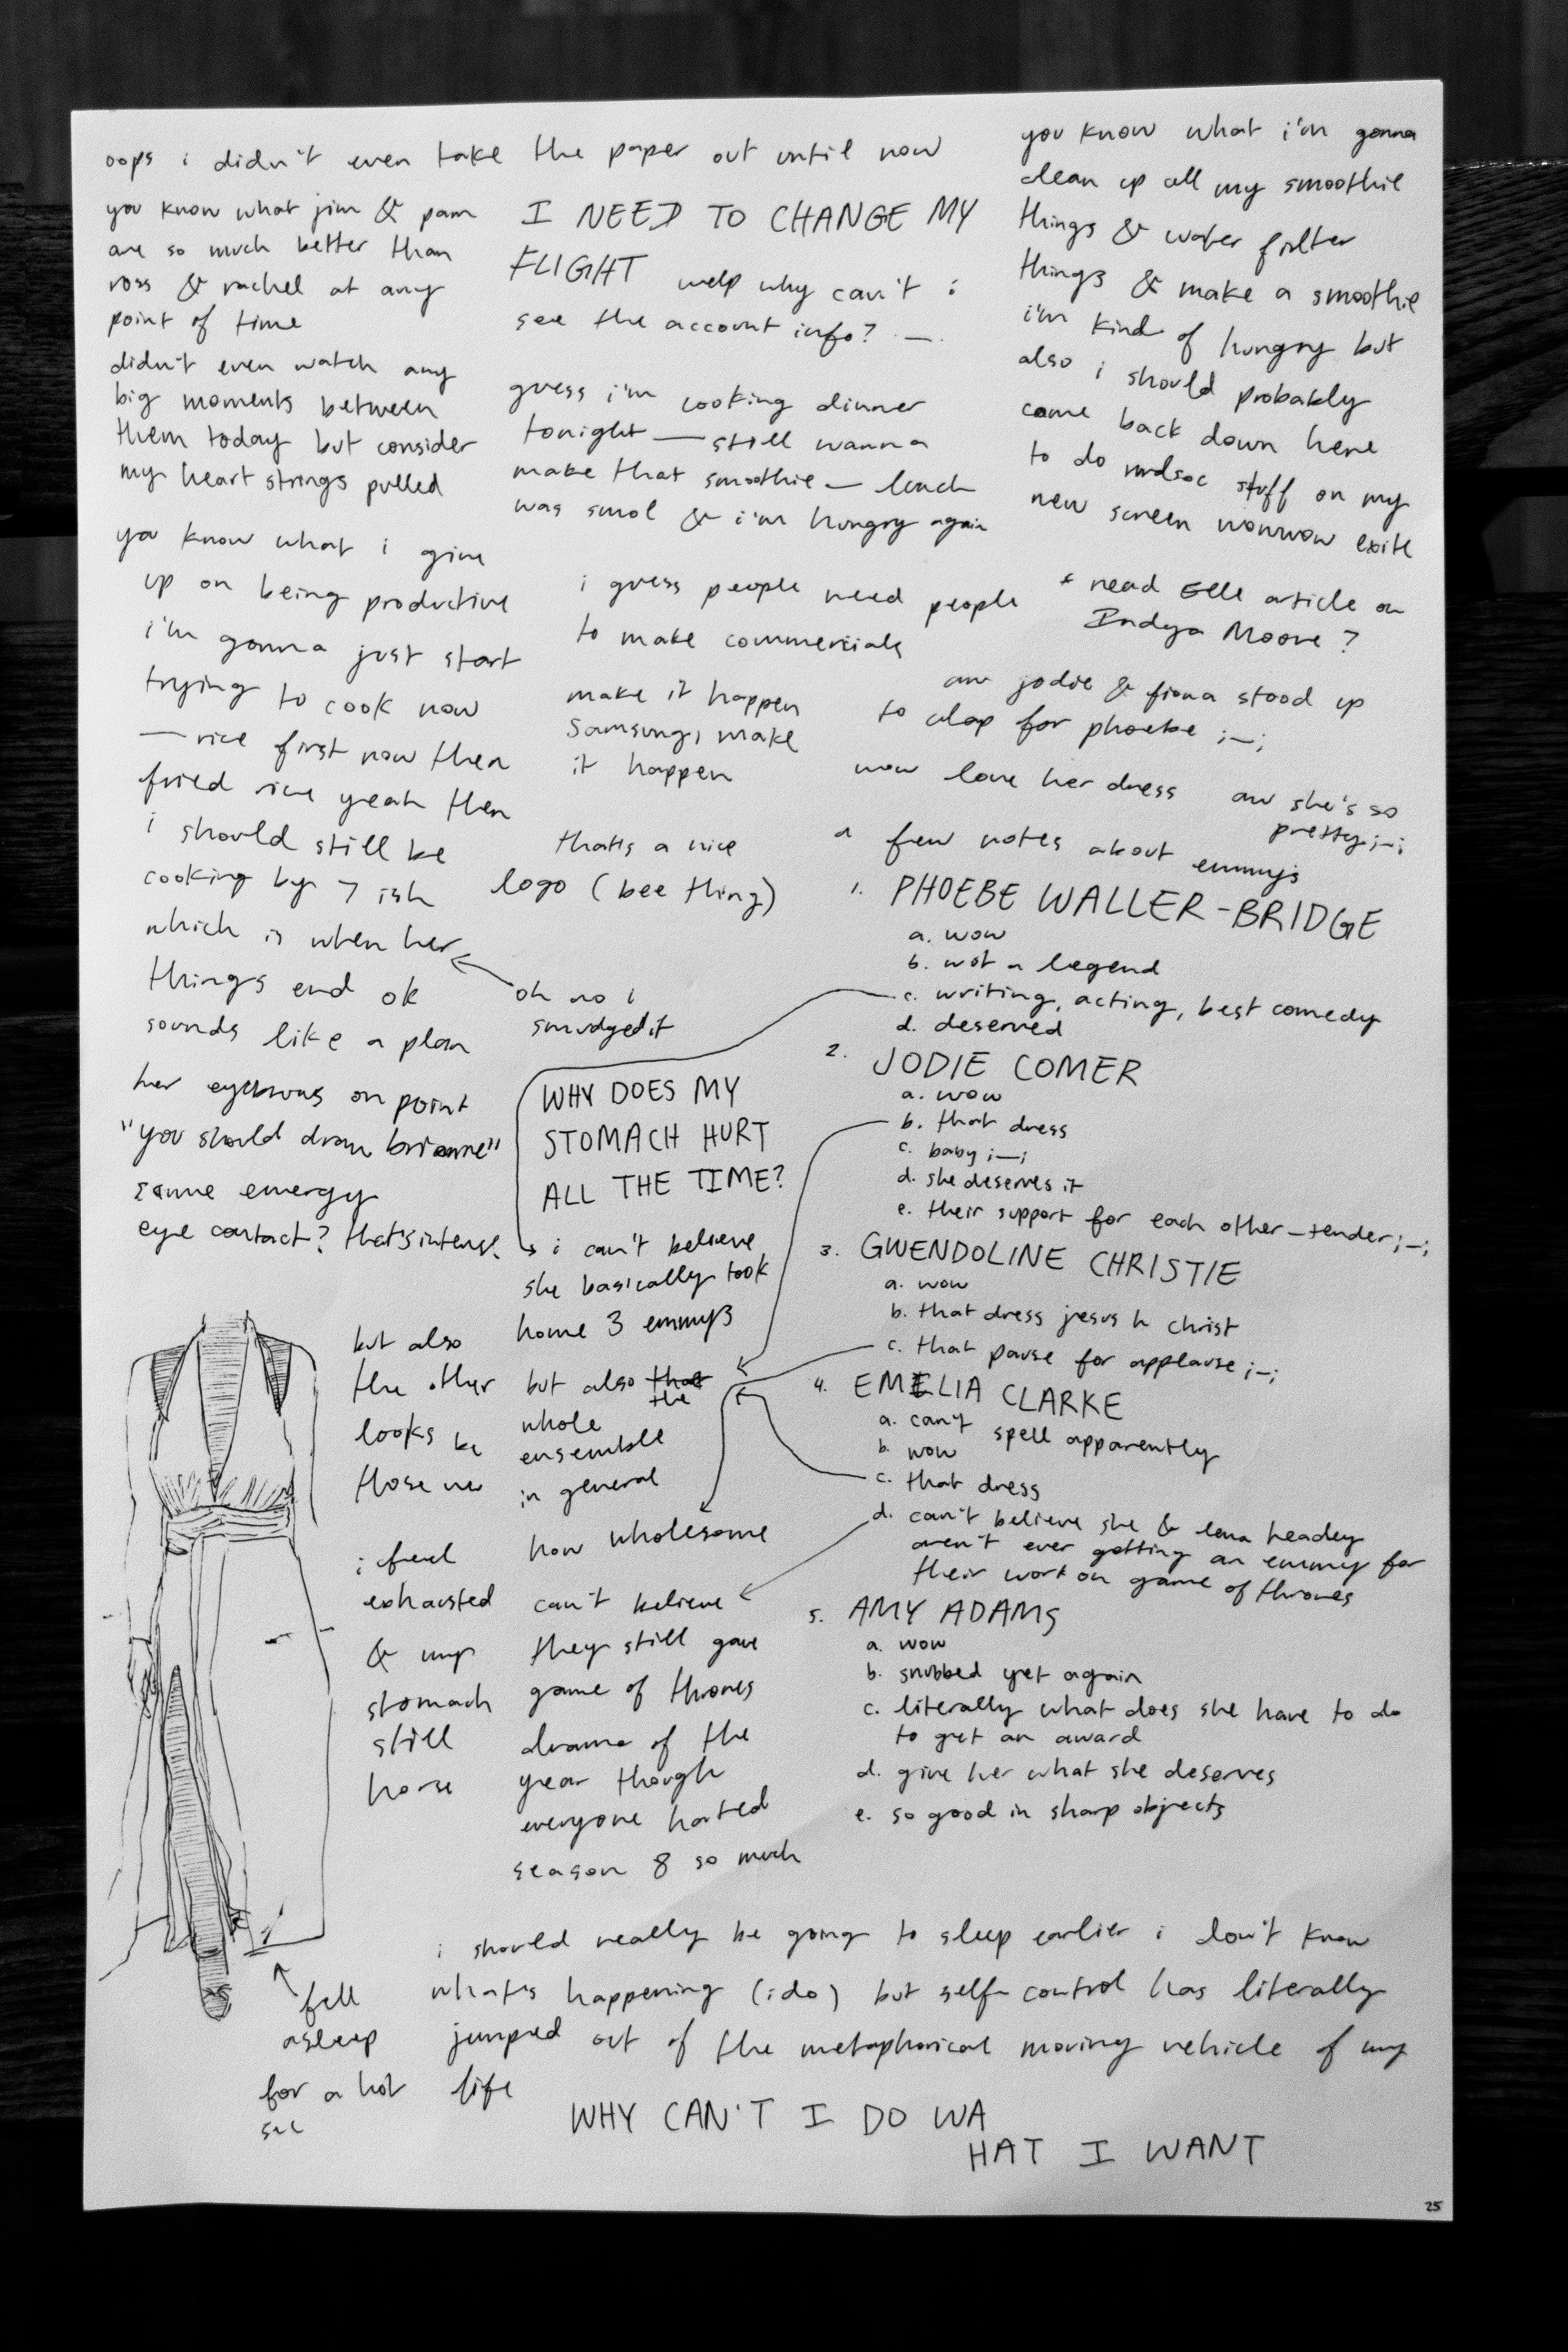 oops i didn't even take the paper out until now
you know what jim & pam
are so much better than
ross & rachel at any
point of time
didn't even watch any
big moments between
them today but consider
my heart strings pulled
you know what i give
up on being productive
i'm gonna just start
trying to cook now
— rice first now then
fried rice yeah then
i should still be
cooking by 7 ish
which is when her
things end ok
sounds like a plan
oh no i
smudged it
her eyebrows on point
"you should draw brianne"
same energy
eye contact? that's intense
I NEED TO CHANGE MY
FLIGHT welp why can't i
see the account info? ._.
guess i'm cooking dinner
tonight — still wanna
make that smoothie — lunch
was smol & i'm hungry again
i guess people need people
to make commercials
make it happen
Samsung, make
it happen
that's a nice
logo (bee thing)
WHY DOES MY
STOMACH HURT
ALL THE TIME?
i can't believe
she basically took
home 3 emmys
but also that
the
whole
ensemble
in general
how wholesome
can't believe
they still gave
game of thrones
drama of the
year though
everyone hated
season 8 so much
but also
the other
looks be
those
i feel
exhausted
& my
stomach
still
you know what i'm gonna
clean up all my smoothie
things & water filter
things & make a smoothie
i'm kind of hungry but
also i should probably
come back down here
to do stuff on my
new screen wowwow
* read Elle article on
Indya Moore?
aw jodie & fiona stood up
to clap for phoebe ;_;
wow love her dress
aw she's so
pretty ;_;
a few notes about emmys
1. PHOEBE WALLER-BRIDGE
a. wow
b. wot a legend
c. writing, acting, best comedy
d. deserved
2. JODIE COMER
a. wow
b. that dress
c. baby ;_;
d. she deserves it
e. their support for each other — tender ;_;
3. GWENDOLINE CHRISTIE
a. wow
b. that dress jesus h christ
c. that pause for applause ;_;
4. EMELIA CLARKE
a. can't spell apparently
b. wow
c. that dress
d. can't believe she & lena headey
aren't ever getting an emmy for
their work on game of thrones
5. AMY ADAMS
a. wow
b. snubbed yet again
c. literally what does she have to do
to get an award
d. give her what she deserves
e. so good in sharp objects
fell
asleep
for a hot
sec
i should really be going to sleep earlier i don't know
what's happening (i do) but self control has literally
jumped out of the metaphorical moving vehicle of my
life
WHY CAN'T I DO WA
HAT I WANT
25